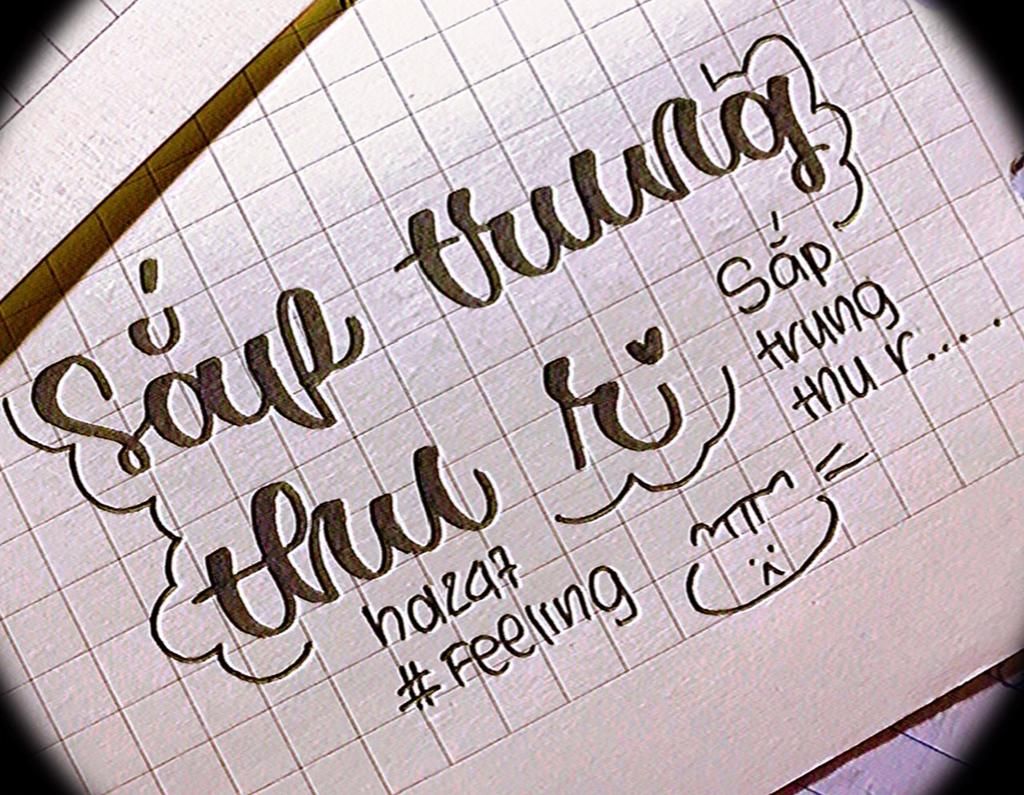 Sắp trung
thu ri
Sắp
trung
thu r....
#Feeling